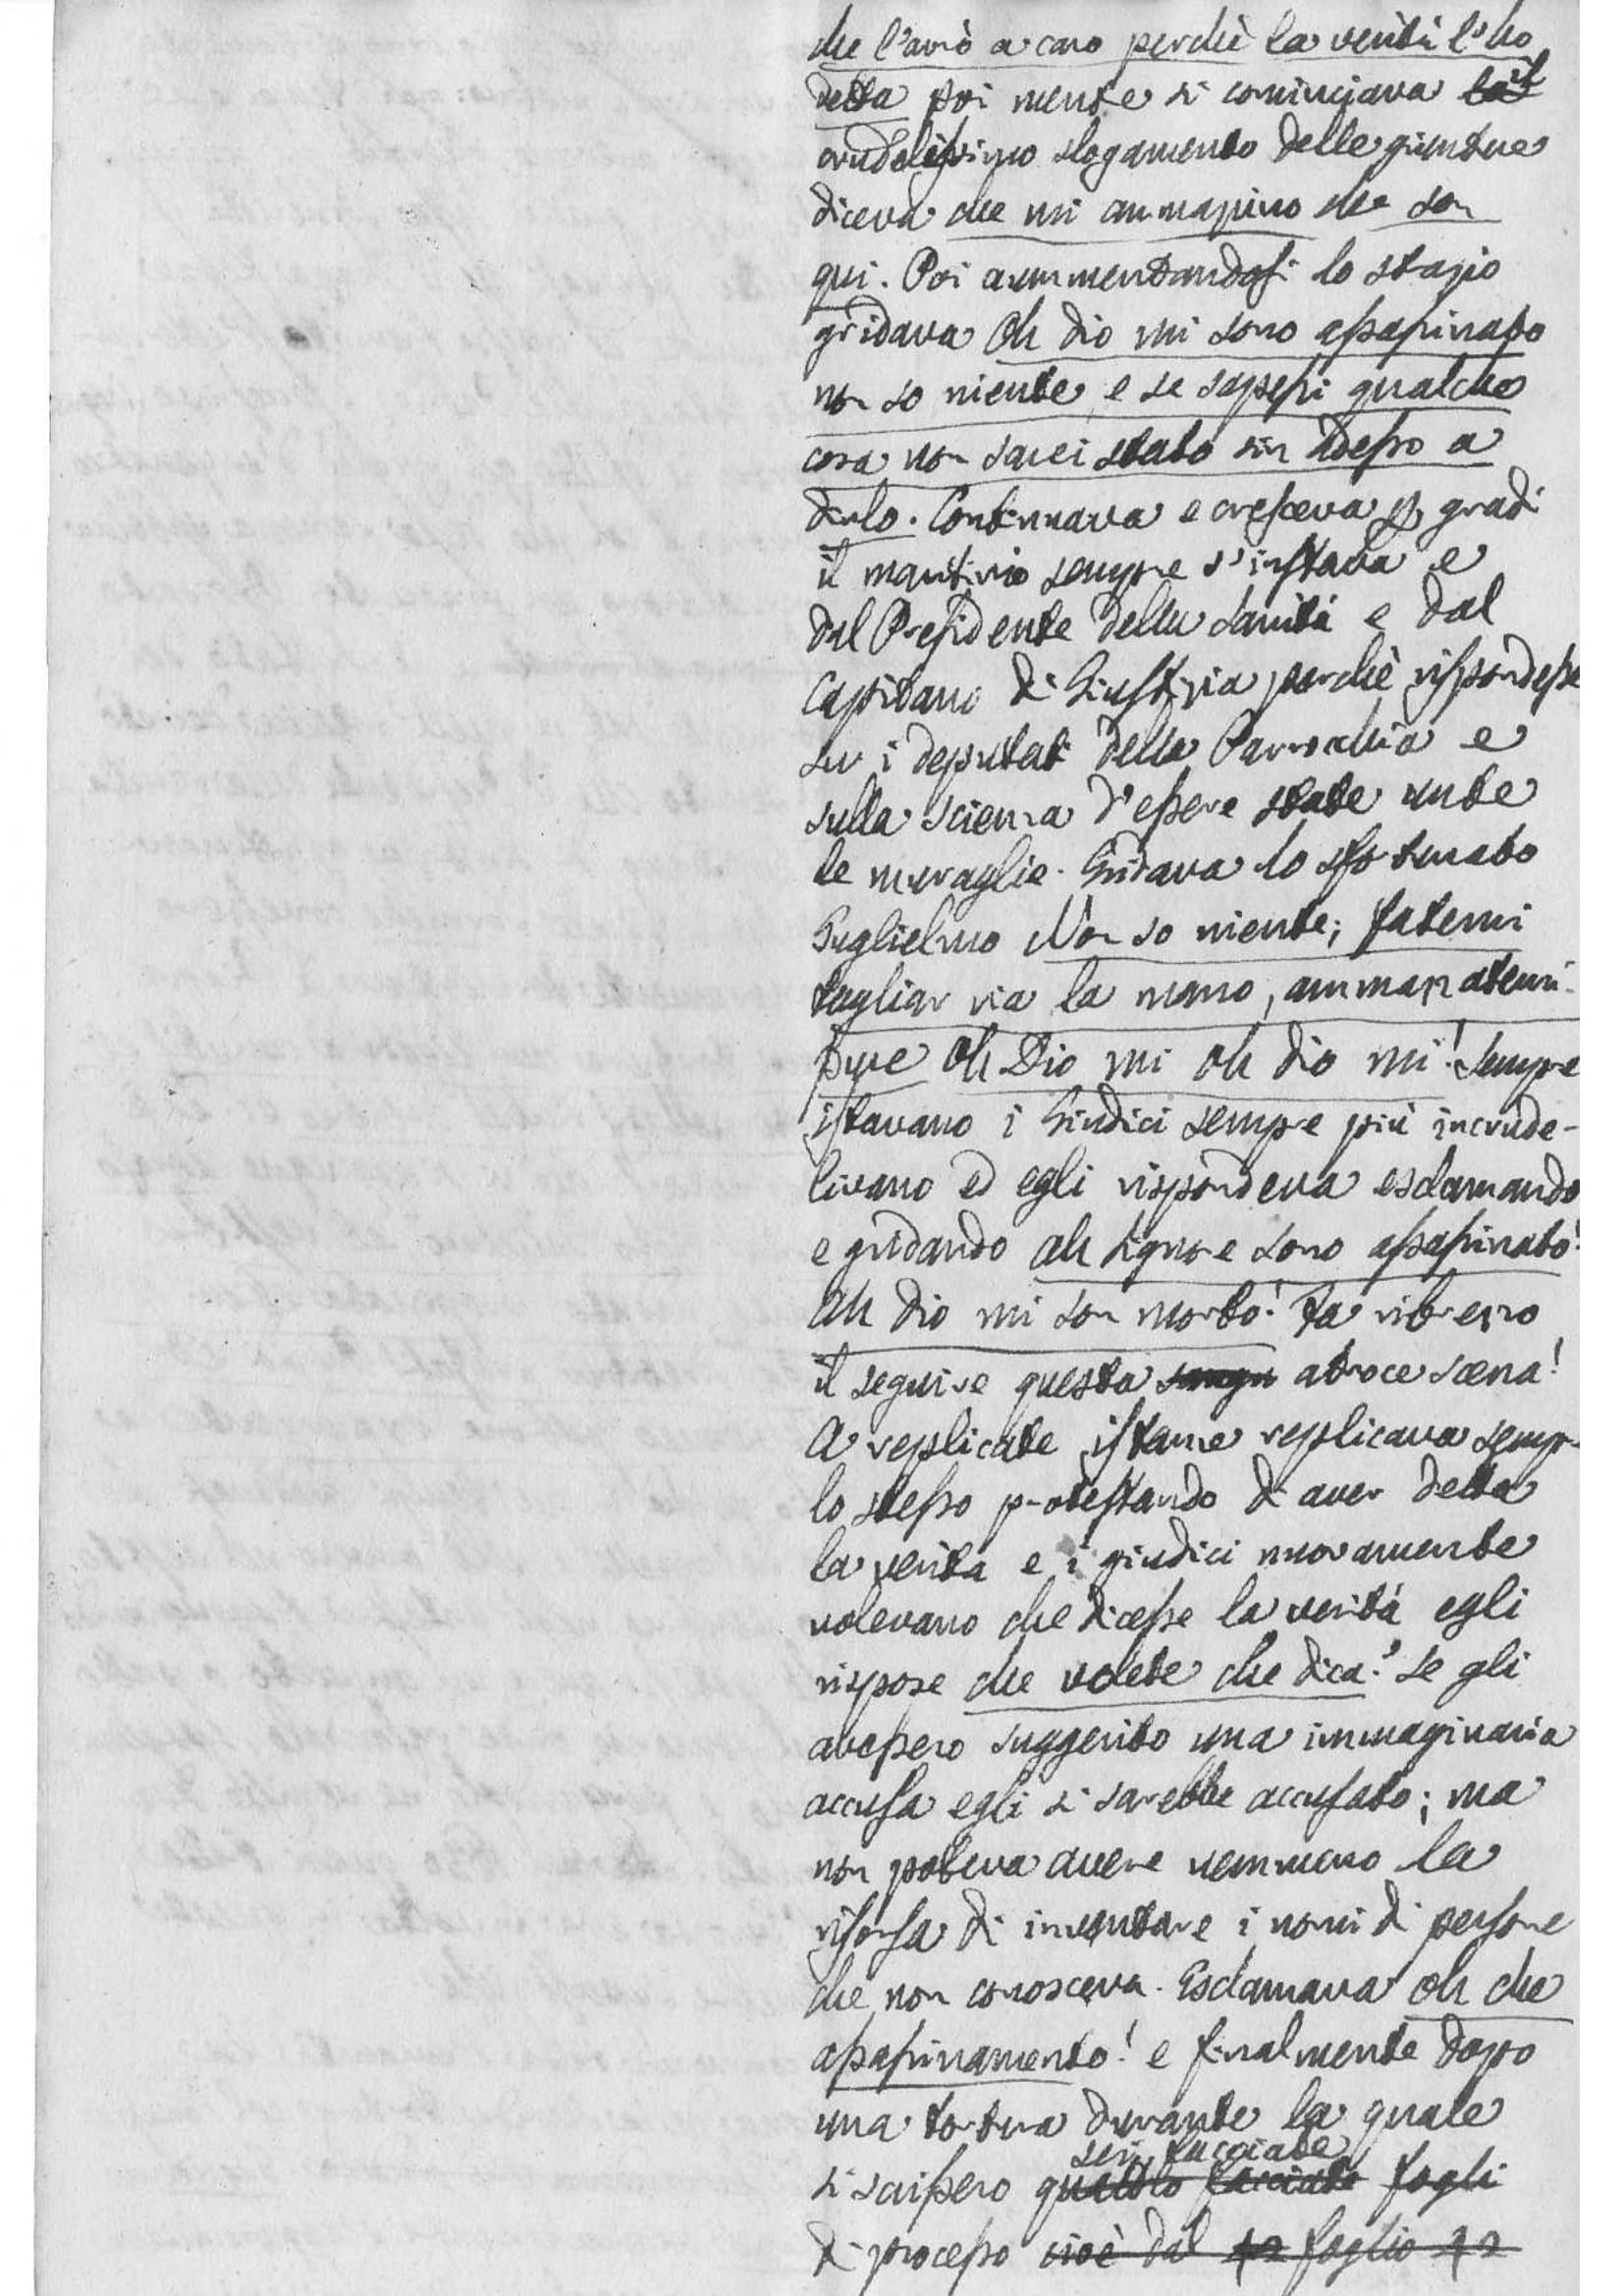 che l'avrò a caro perchè la verità l'ho
detta poi mentre si cominciava il
crudelissimo slogamento delle giunture
diceva che mi ammazzino che son
qui. Poi aummentandosi lo strazio
gridava Oh dio mi sono assassinato
non so niente, e se sapessi qualche
cosa non sarei stato sin adesso a
dirlo. Continuava e cresceva per gradi
il martirio sempre s'instava e
dal Presidente della Sanità e dal
Capitano di Giustizia perchè rispondesse
su i deputati della Parrocchia e
sulla scienza d'essere state unte
le muraglie. Gridava lo sfortunato
Guglielmo Non so niente; fatemi
tagliar via la mano, ammazzatemi
pure Oh Dio mi oh dio mi! Sempre
istavano i Giudici sempre più incrude-
livano ed egli rispondeva esclamando
e gridando ah Signore sono assassinato!
Ah Dio mi son morto! Fa ribrezzo
il seguire questa sangu atroce scena!
A replicate istanze replicava sempre
lo stesso protestando di aver detta
la verità e i giudici nuovamente
volevano che dicesse la verità egli
rispose che volete che dica? Se gli
avessero suggerito una immaginaria
accusa egli si sarebbe accusato; ma
non poteva avere nemmeno la
risorsa di inventare i nomi di persone
che non conosceva. Esclamava Oh che
assassinamento! e finalmente dopo
una tortura durante la quale
sei facciate
si scrissero quattro facciate fogli
di processo cioè dal 42 foglio 42